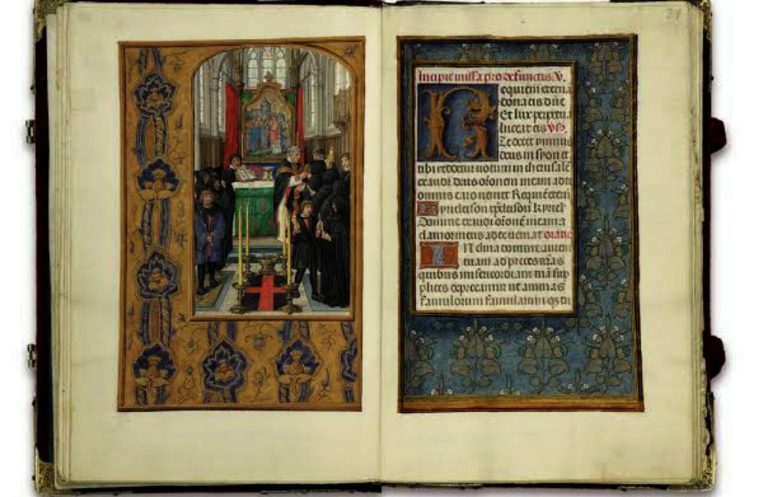 24
Incipit missa pro defunctis. V.
Requiem eterna
dona eis dñe
Et lux perpetua
luceat eis. ps.
Te decet ymnus
deus in syon et
tibi reddetur uotum in iherusale
exaudi deus orōnem meam ad te
omnis caro ueniet Requiē etern
Kyrieleison xpeleison kyriel
Domine exaudi orōnē meam a
clamor meus ad te ueniat oratio
Inclina domine aurem
tuam ad preces nr̄as
quibus misericordiam tuā sup
plices deprecamur ut animas
famulorum famularūmqz tu